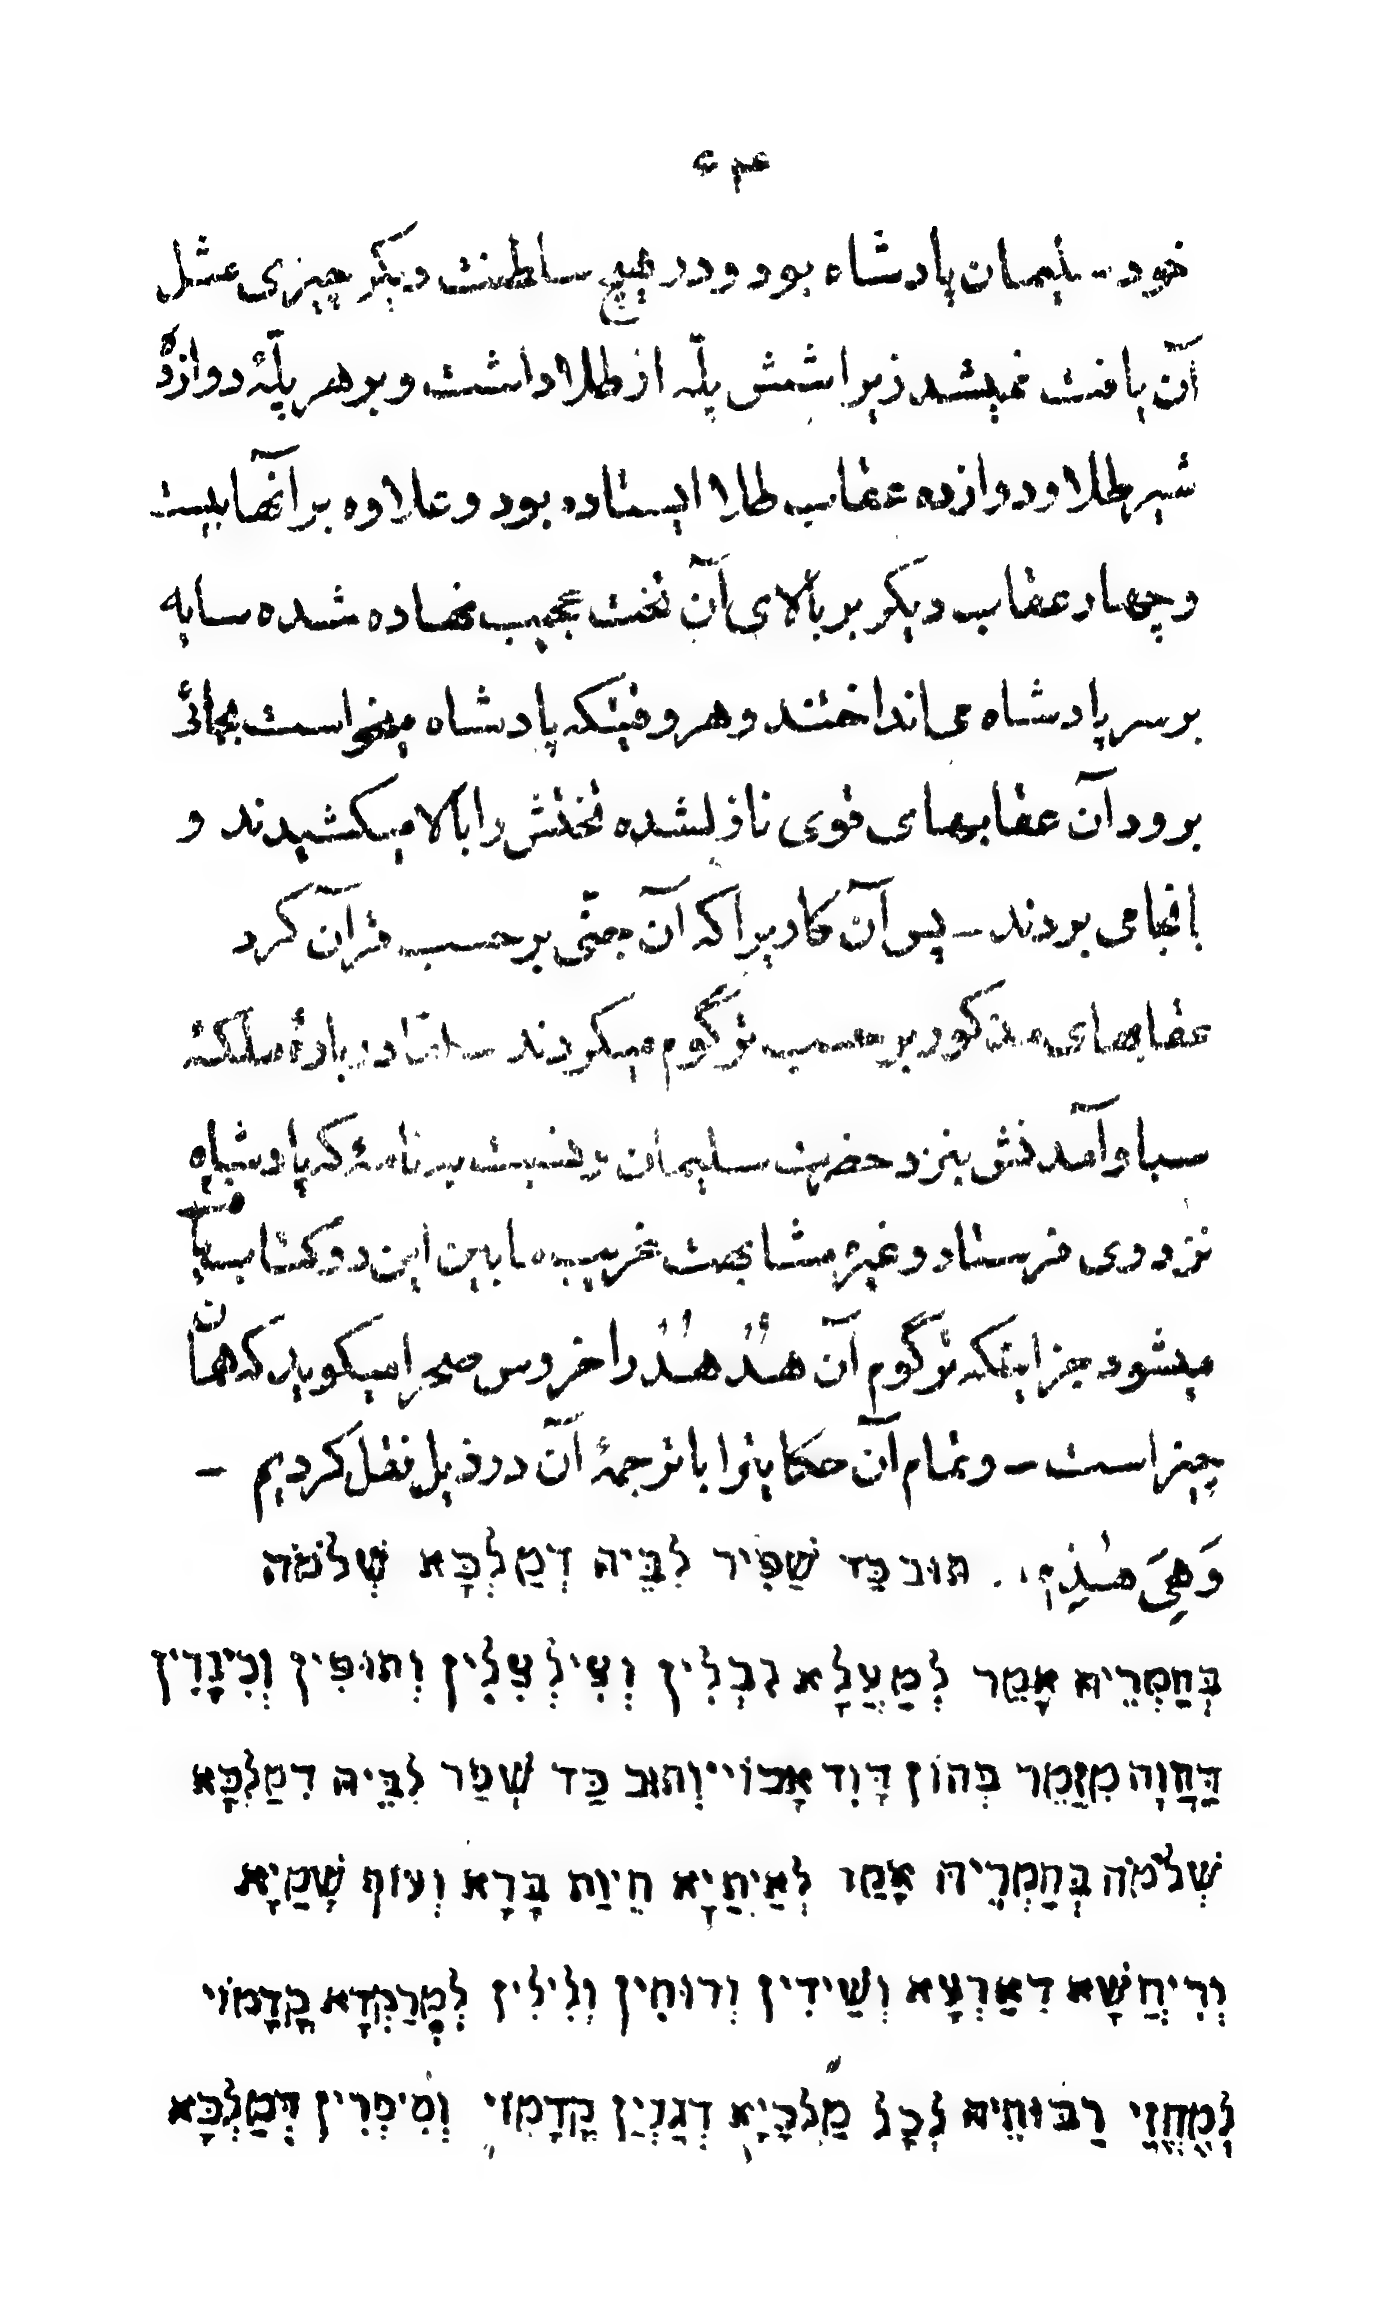 ۶۴
خود سلیمان پادشاه بود و در هیچ سلطنت دیگر چیزی مثل
آن یافت نمیشد زیرا شش پلّه از طلا داشت و بر هر پلّهٔ دوازدهٔ
شیر طلا و دوازده عقاب طلا ایستاده بود و علاوه بر آنها بیست
و چهار عقاب دیگر بر بالای آن تخت عجیب نهاده شده سایه
بر سر پادشاه می انداختند و هر وقتیکه پادشاه میخواست بجائی
برود آن عقابهای قوی نازلشده تختش را بالا میکشیدند و
بانجا می بردند ــ پس آن کاریرا که آن جنّی بر حسب قرآن کرد
عقابهای مذکور بر حسب ترگوم میکردند ــ امّا در بارهٔ ملکهٔ
سبا و آمدنش بنزد حضرت سلیمان و نسبت بنامهٔ که پادشاه
نزد وی فرستاد و غیره مشابهت غریب ما بین این دو کتاب یافت
میشود جز اینکه ترگوم آن هُدهُد را خروس صحرا میگوید که همان
چیز است ــ و تمام آن حکایترا با ترجمهٔ آن در ذیل نقل کردیم ــ
وَهِیَ هٰذِه . תּוּב כַּד שַׁפִּיר לִבֵּיהּ דְמַלְכָּא שְׁלֹמֹה
בְּחַמְרֵיהּ אֲמַר לְמַעֲלָא נִבְלִין וְצִילְצְלִין וְתוּפִּין וְכִינָרִין
דַּחֲוָה מְזַמֵּר בְּהוֹן דָּוִד אָבוֹי׃ וְתוּב כַּד שְׁפַר לִבֵּיהּ דְמַלְכָּא
שְׁלֹמֹה בְּחַמְרֵיהּ אֲמַר לְאַיתַיָא חֵיוַת בָּרָא וְעוֹף שְׁמַיָא
וְרִיחֲשָׁא דְאַרְעָא וְשֵׁידִין וְרוּחִין וְלִילִין לְמְרַקְּדָא קֳדָמוֹי
לְמֶחֱזֵי רְבוּתֵיהּ לְכָל מַלְכַיָא דְּגַנְיַן קֳדָמוֹי וְסִיפְרִין דְמַלְכָּא